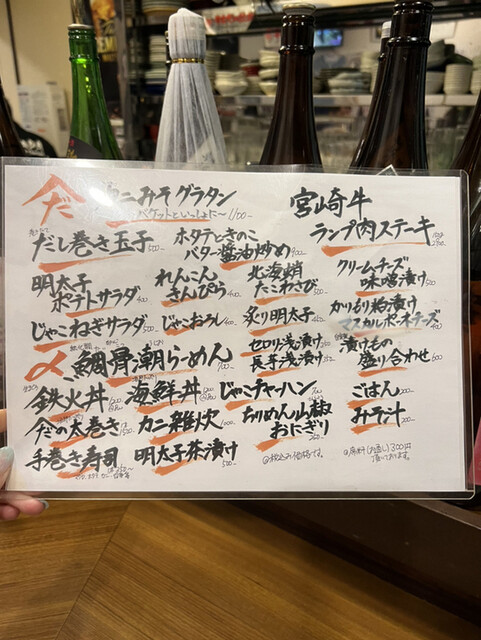 だ
カニみそグラタン
バケットといっしょに〜 1100-
宮崎牛
ランプ肉ステーキ
だし巻き玉子 500-
ホタテときのこ
バター醤油炒め 900-
明太子
ポテトサラダ
れんこん
きんぴら
北海蛸
たこわさび
クリームチーズ
味噌漬け 500-
じゃこねぎサラダ
じゃこおろし
炙り明太子
かりもり粕漬け
マスカルポーネチーズ
〆
鯛骨潮らーめん
セロリ浅漬け
長芋浅漬け
漬けもの
盛り合わせ 600
鉄火丼
海鮮丼
じゃこチャーハン
ごはん 200-
だの太巻き
カニ雑炊
ちりめん山椒
おにぎり
みそ汁 200-
手巻き寿司
明太子茶漬け
@税込み価格です。
@席料(お通し)300円
頂いております。